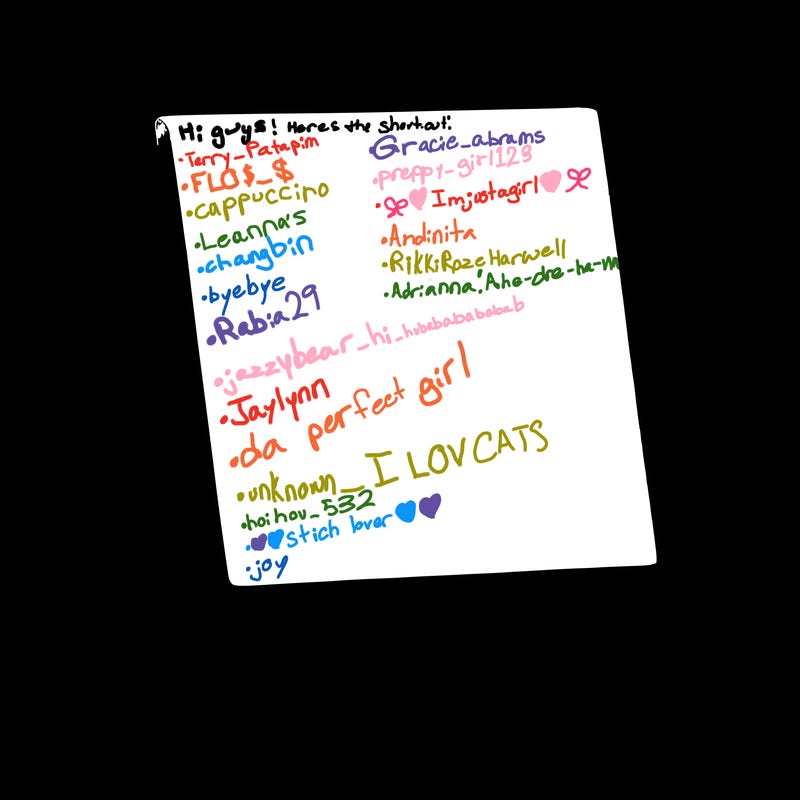 Hi guys! Heres the shortout:
•Terry_Patapim
•FLO$_$
•cappuccino
•Leanna's
•changbin
•byebye
•Rabia29
•jazzybear_hi_hubabababab
•Jaylynn
•da perfect girl
•unknown_I LOV CATS
•hoihou_532
•💜💙stich lover💙💜
•joy
•Gracie_abrams
•preppy-girl123
•🎀🩷Imjustagirl🩷🎀
•Andinita
•RikkiRozeHarwell
•Adrianna! Ahe-dre-ha-n